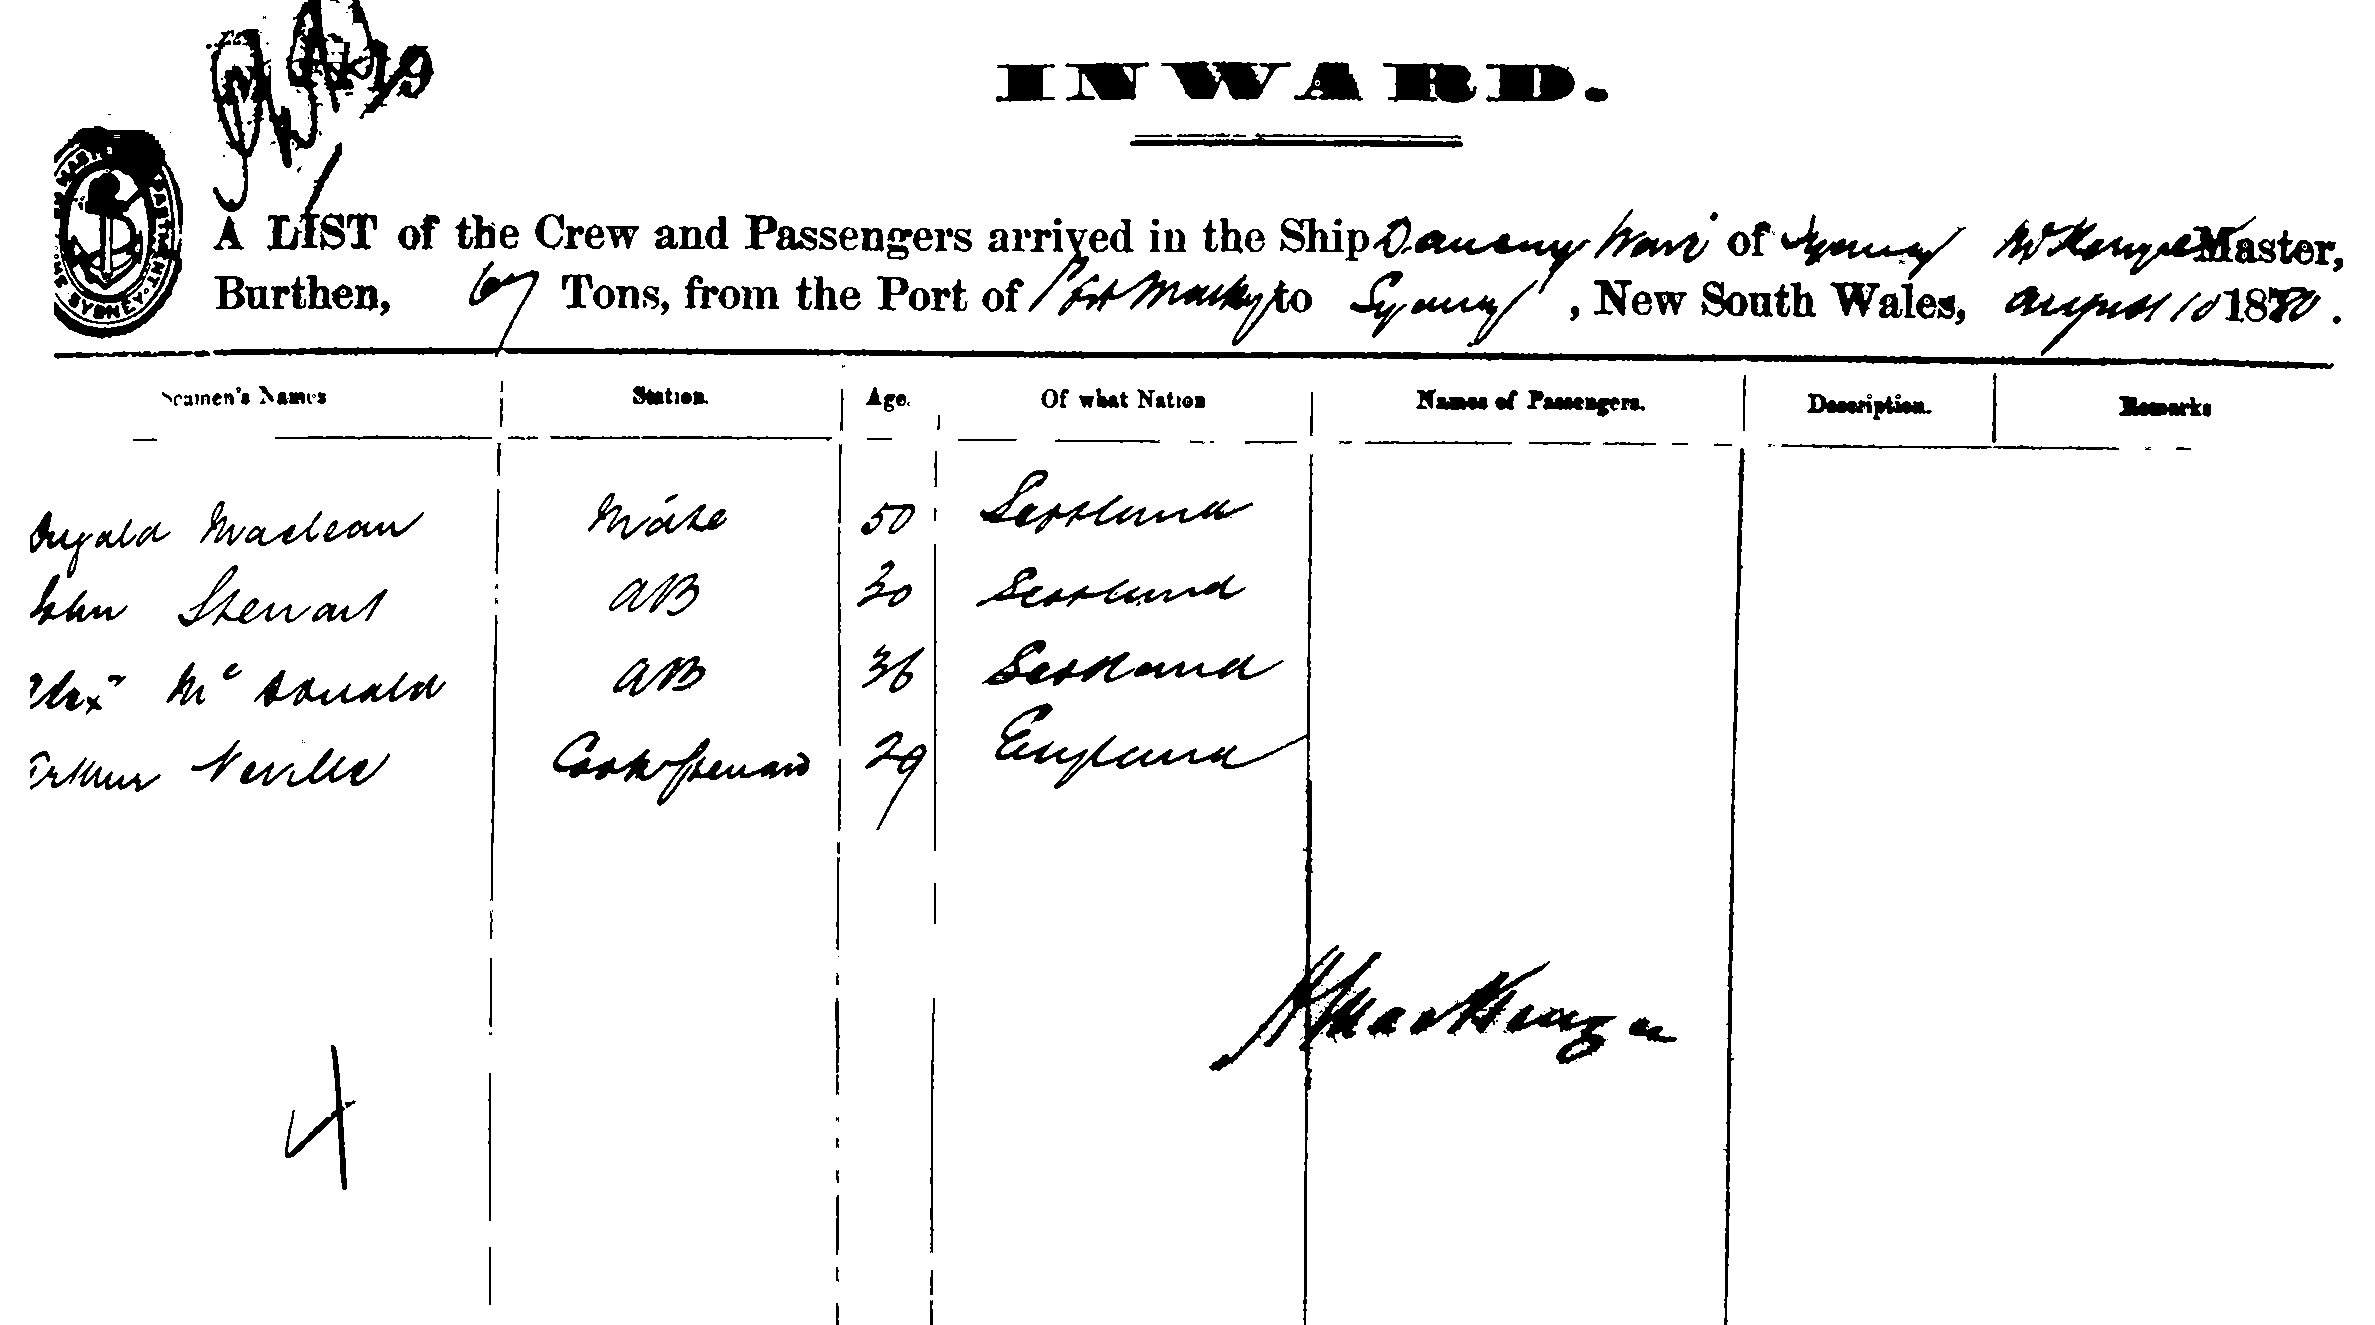 INWARD.
A LIST of the Crew and Passengers arrived in the Ship of Sydney McKenzie Master,
Burthen, 67 Tons, from the Port of Port Mackay to Sydney, New South Wales, August 10 1880.
Seamen's Names Station. Age. Of what Nation Names of Passengers. Description. Remarks
Dugald Maclean Mate 50 Scotland
John Stewart AB 30 Scotland
Alexr Mc Donald AB 36 Scotland
Arthur Neville Cook & Steward 29 England
MacKenzie
4